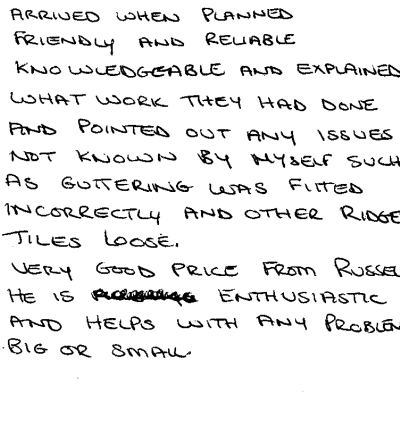 ARRIVED WHEN PLANNED
FRIENDLY AND RELIABLE
KNOWLEDGEABLE AND EXPLAINED
WHAT WORK THEY HAD DONE
AND POINTED OUT ANY ISSUES
NOT KNOWN BY MYSELF SUCH
AS GUTTERING WAS FITTED
INCORRECTLY AND OTHER RIDGE
TILES LOOSE.
VERY GOOD PRICE FROM RUSSEL
HE IS ENTHUSIASTIC
AND HELPS WITH ANY PROBLEM
BIG OR SMALL.